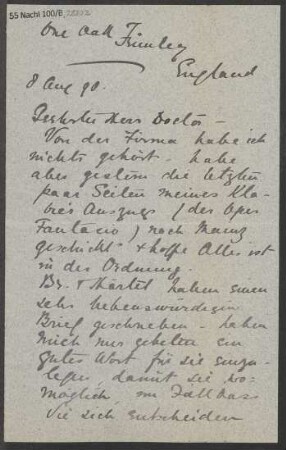 55 Nachl 100/B,
One Oak
Frimley
England
8 Aug 90.
Geehrter Herr Doctor –
Von der Firma habe ich
nichts gehört. habe
aber gestern die letzten
paar Seiten meines Kla-
vier Auszugs (der Oper
Fantasio) nach Mainz
geschickt & hoffe Alles ist
in der Ordnung.
Br. & Härtel haben einen
sehr liebenswürdigen
Brief geschrieben – haben
mich nur gebeten ein
gutes Wort für sie einzu-
legen, damit sie wo-
möglich, im Fall dass
Sie sich entscheiden